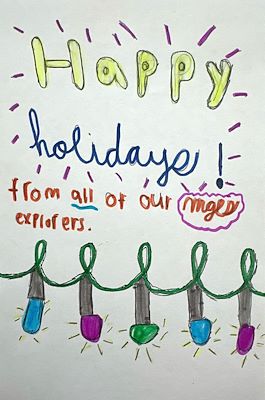 Happy
holidays!
from all of our
explorers.